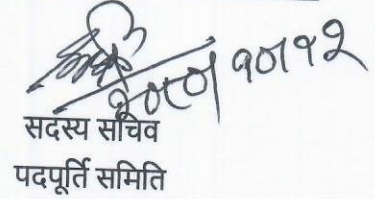 २०८० १०।१२
सदस्य सचिव
पदपूर्ति समिति